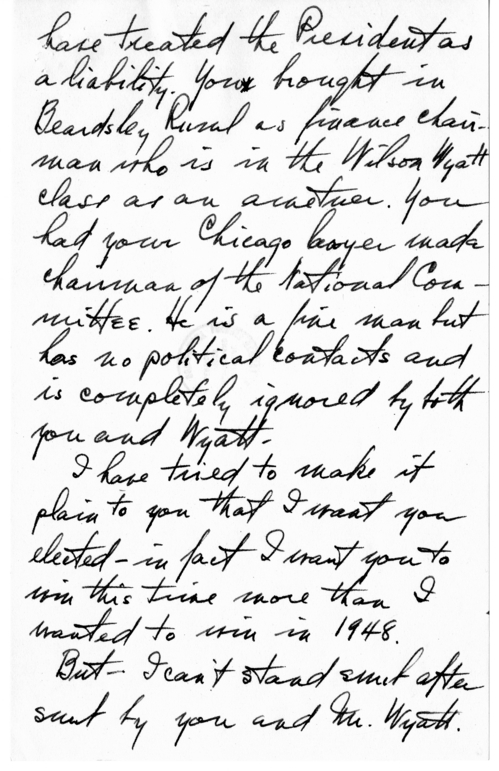 have treated the President as
a liability. You brought in
Beardsley Ruml as finance chair-
man who is in the Wilson Wyatt
class as an amateur. You
had your Chicago lawyer made
chairman of the National Com-
mittee. He is a fine man but
has no political contacts and
is completely ignored by both
you and Wyatt-
I have tried to make it
plain to you that I want you
elected - in fact I want you to
win this time more than I
wanted to win in 1948.
But - I can't stand snub after
snub by you and Mr. Wyatt.